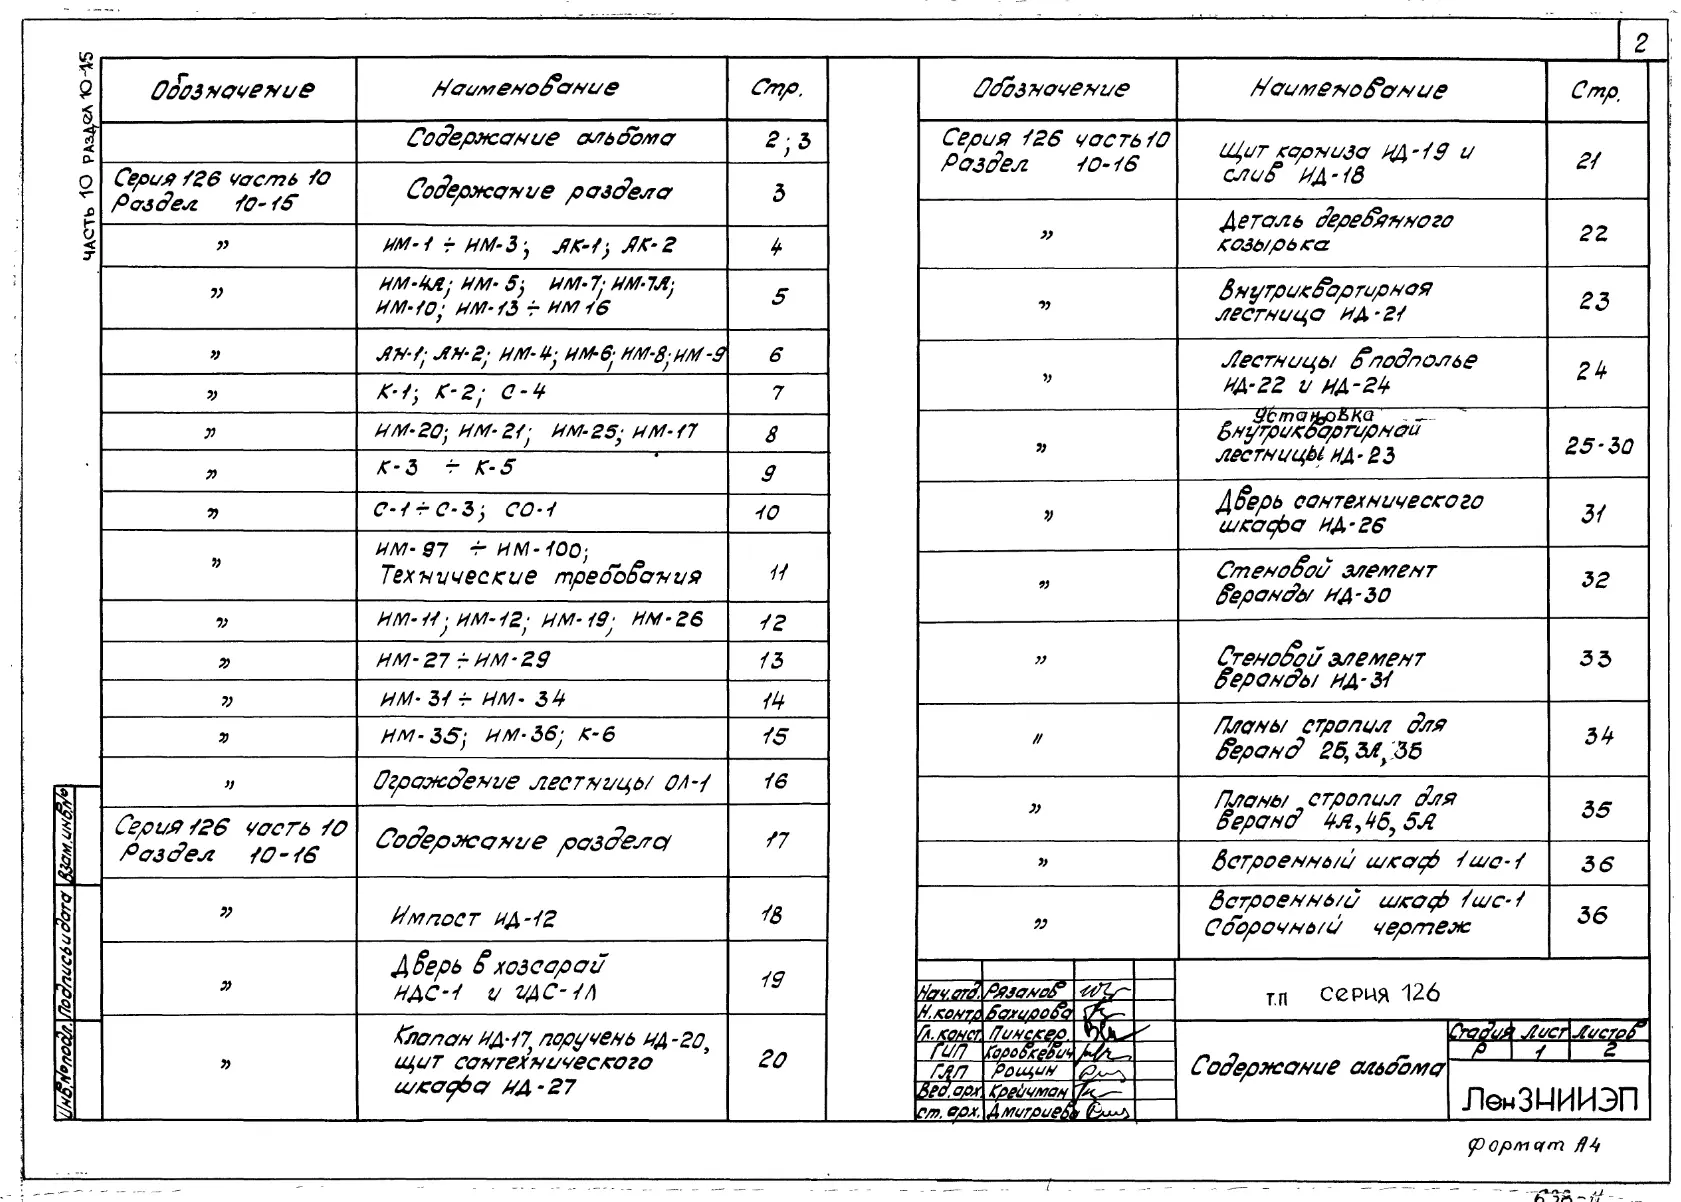 2
ЧАСТЬ 10 РАЗДЕЛ 10-15
Обозначение Наименование Стр.
Содержание альбома 2; 3
Серия 126 часть 10
Раздел 10-15 Содержание раздела 3
" ИМ-1 ÷ ИМ-3; ЛК-1; ЛК-2 4
" ИМ-4Л; ИМ-5; ИМ-7; ИМ-7Л;
ИМ-10; ИМ-13 ÷ ИМ 16 5
" ЛН-1; ЛН-2; ИМ-4; ИМ-6; ИМ-8; ИМ-9 6
" К-1; К-2; С-4 7
" ИМ-20; ИМ-21; ИМ-25; ИМ-17 8
" К-3 ÷ К-5 9
" С-1 ÷ С-3; СО-1 10
" ИМ-97 ÷ ИМ-100;
Технические требования 11
" ИМ-11; ИМ-12; ИМ-19; ИМ-26 12
" ИМ-27 ÷ ИМ-29 13
" ИМ-31 ÷ ИМ-34 14
" ИМ-35; ИМ-36; К-6 15
" Ограждение лестницы ОЛ-1 16
Серия 126 часть 10
Раздел 10-16 Содержание раздела 17
" Импост ИД-12 18
" Дверь в хозсарай
ИДС-1 и ИДС-1Л 19
" Клапан ИД-17, поручень ИД-20,
щит сантехнического
шкафа ИД-27 20
Обозначение Наименование Стр.
Серия 126 часть 10
Раздел 10-16 Щит карниза ИД-19 и
слив ИД-18 21
" Деталь деревянного
козырька 22
" Внутриквартирная
лестница ИД-21 23
" Лестницы в подполье
ИД-22 и ИД-24 24
Установка
" Внутриквартирной
лестницы ИД-23 25-30
" Дверь сантехнического
шкафа ИД-26 31
" Стеновой элемент
веранды ИД-30 32
" Стеновой элемент
веранды ИД-31 33
" Планы стропил для
веранд 2Б, 3А, 3Б 34
" Планы стропил для
веранд 4А, 4Б, 5А 35
" Встроенный шкаф 1шс-1 36
" Встроенный шкаф 1шс-1
Сборочный чертеж 36
Нач.отд. Рязанов
Н.контр Бахирова
Гл.конст. Пинскер
ГИП Коробкевич
ГАП Рощин
Вед.арх. Крейчман
ст. арх. Дмитриева
т.п серия 126
Содержание альбома
Стадия Лист Листов
Р 1 2
ЛенЗНИИЭП
Инв.№подл. Подпись и дата Взам.инв.№
Формат А4